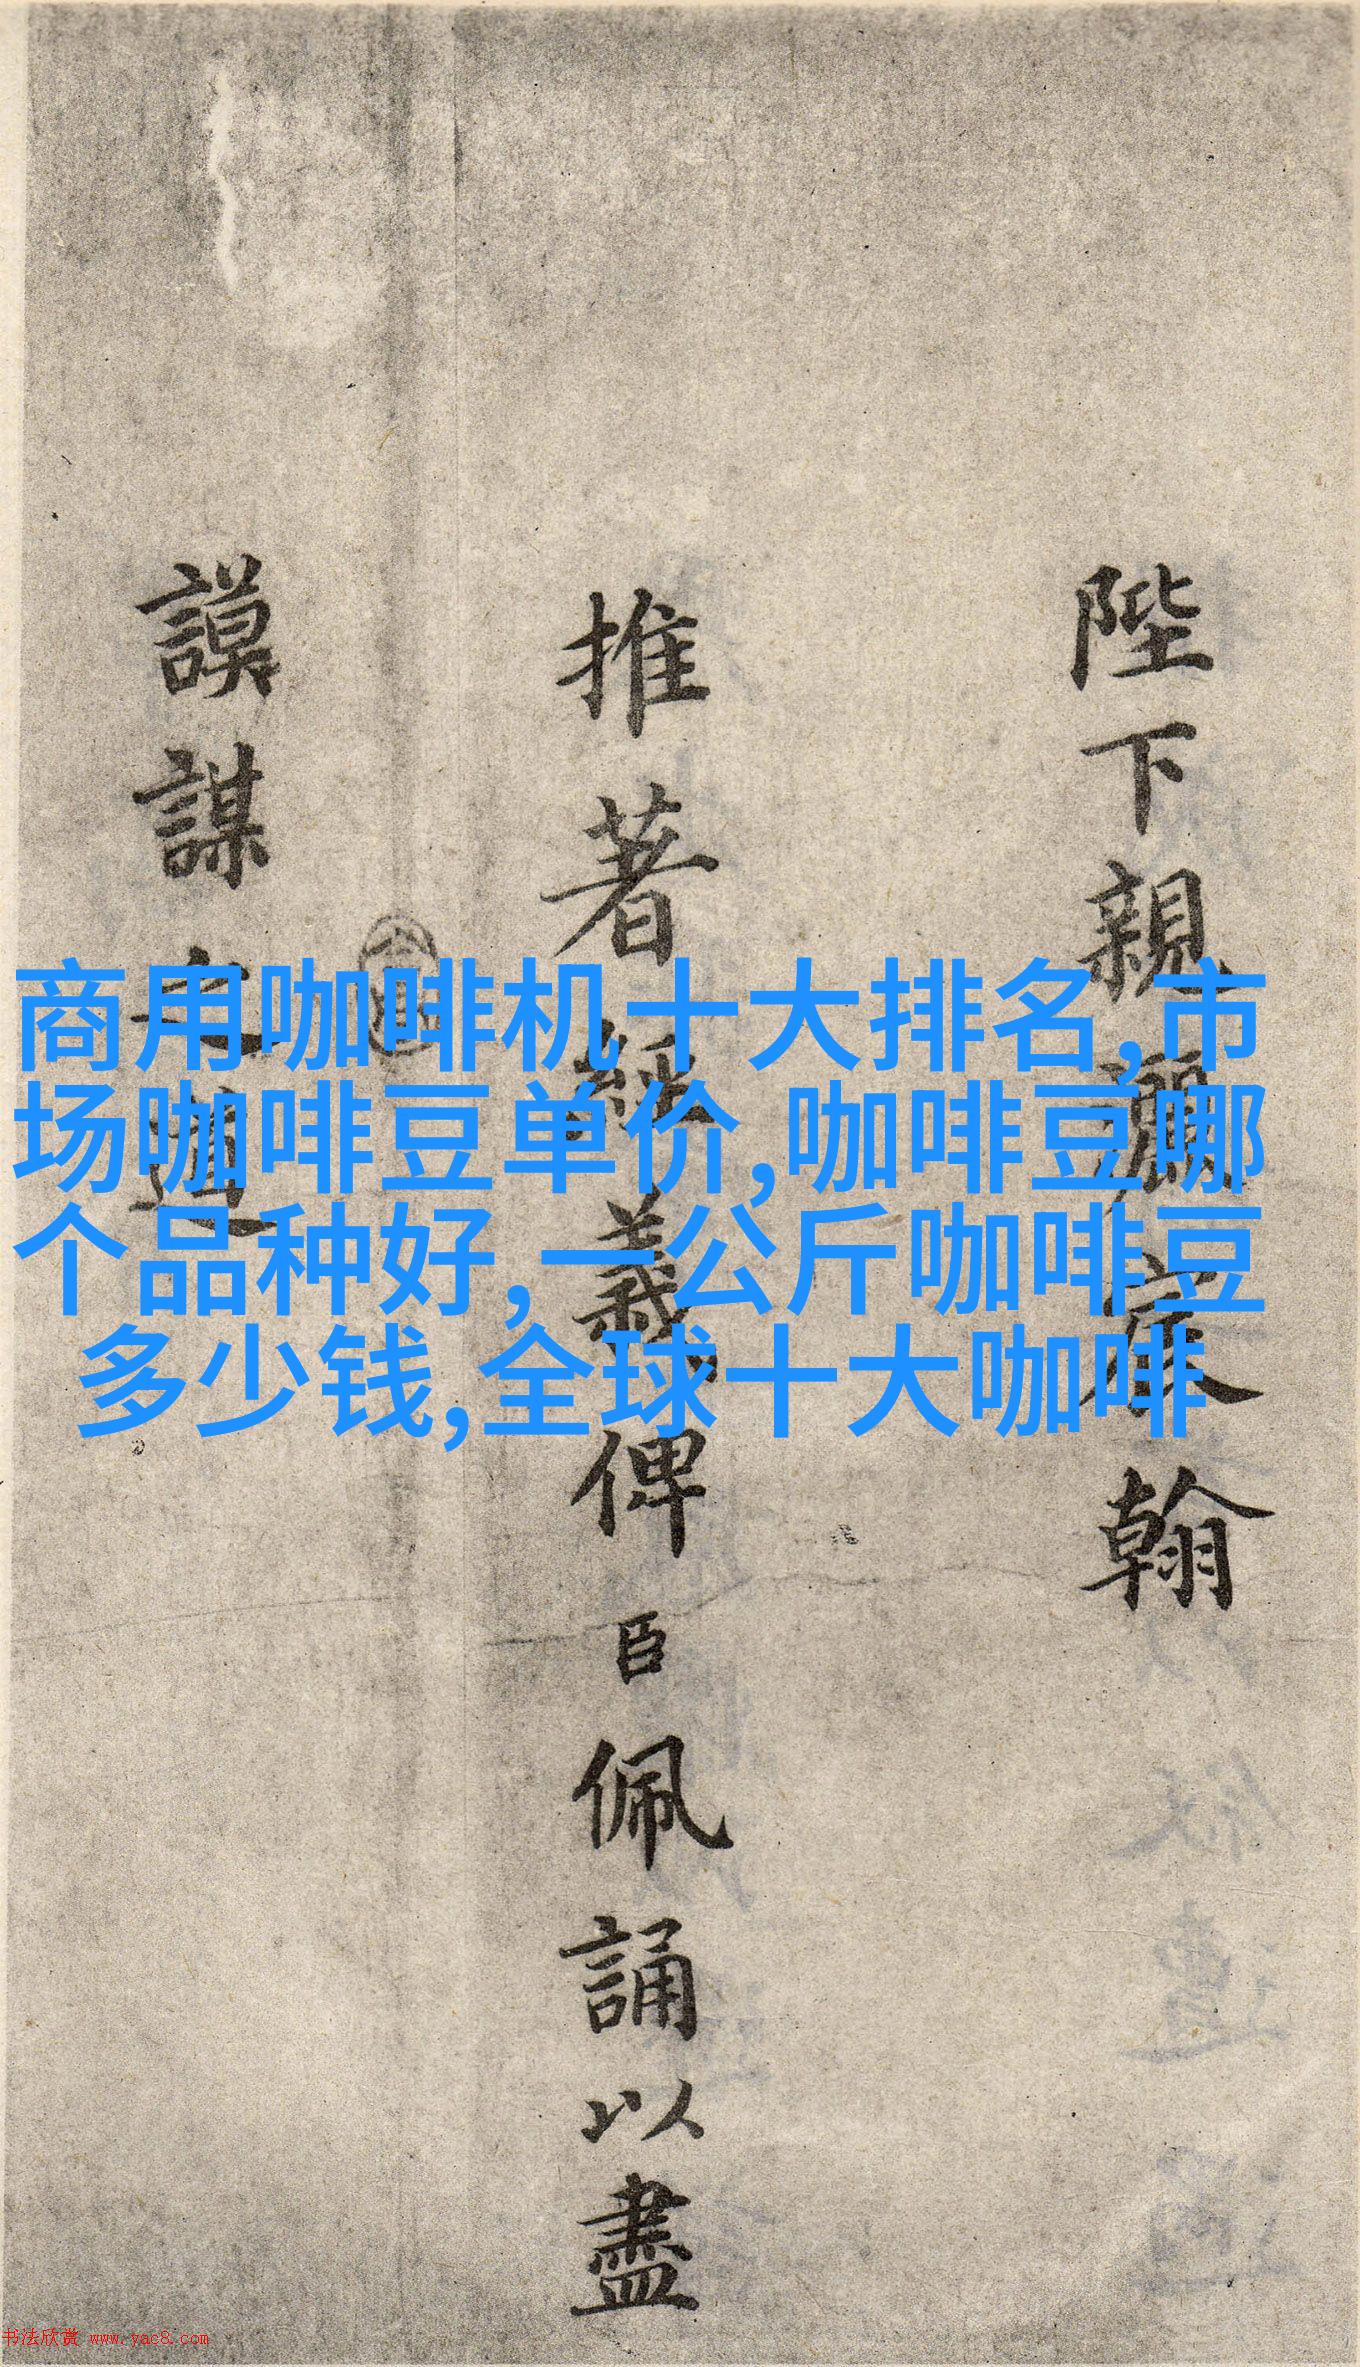 商用咖啡机十大排名,市
场咖啡豆单价,咖啡豆哪
个品种好,一公斤咖啡豆
多少钱,全球十大咖啡
陛下親灑宸翰
推著經義俾臣佩誦以盡
謨謀之道
书法欣赏 www.yac8.com